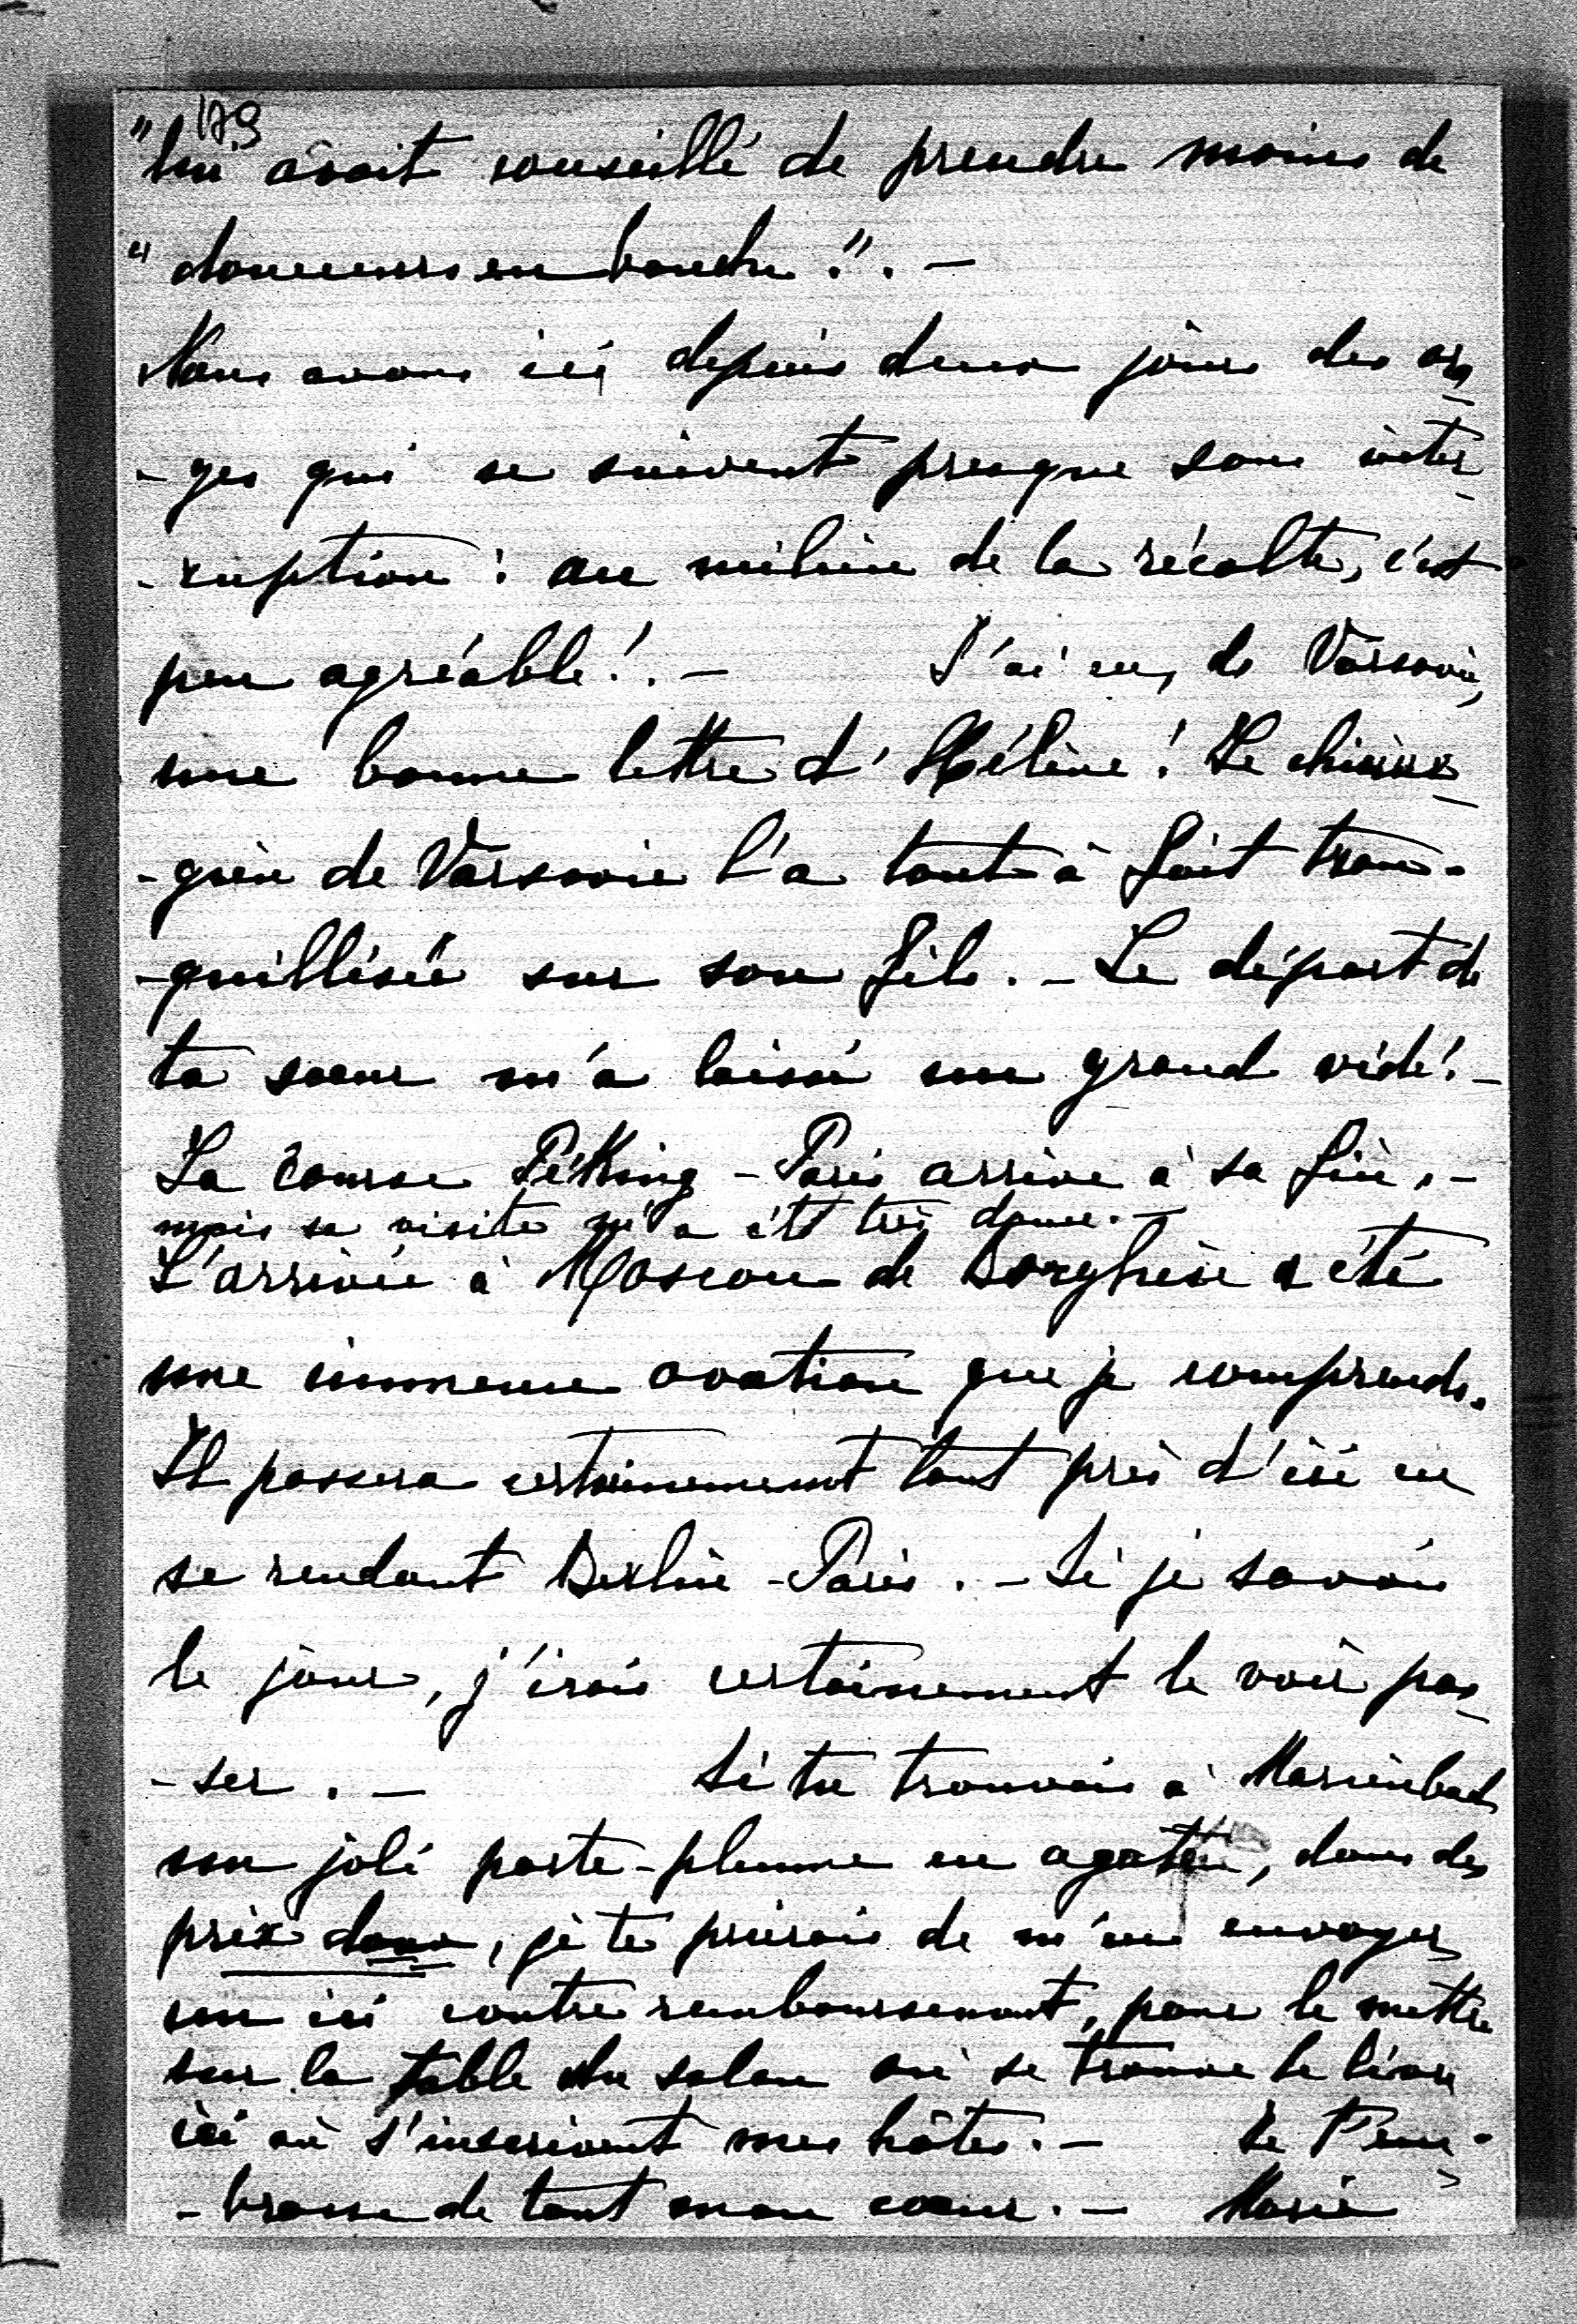 179
"lui avait conseillé de prendre moins de
"douceurs en bouche.". —
Nous avons ici depuis deux jours des ora-
-ges qui se suivent presque sans inter-
-ruption : au milieu de la récolte, c'est
peu agréable!. — J'ai eu, de Varsovie,
une bonne lettre d'Hélène! Le chirur-
-gien de Varsovie l'a tout à fait tran-
-quillisée sur son fils. — Le départ de
ta sœur m'a laissé un grand vide!. —
La course Péking - Paris arrive à sa fin. —
mais sa visite m'a été très douce. —
L'arrivée à Moscou de Borghèse a été
une immense ovation que je comprends.
Il passera certainement tout près d'ici en
se rendant Berlin - Paris. — Si je savais
le jour, j'irais certainement le voir pas-
-ser. — Si tu trouvais à Marienbad
un joli porte-plume en agate, dans des
prix doux, je te prierais de m'en envoyer
un ici contre remboursement, pour le mettre
sur la table du salon où se trouve le livre
ici où s'inscrivent mes hôtes. — Je t'em-
-brasse de tout mon cœur. — Marie